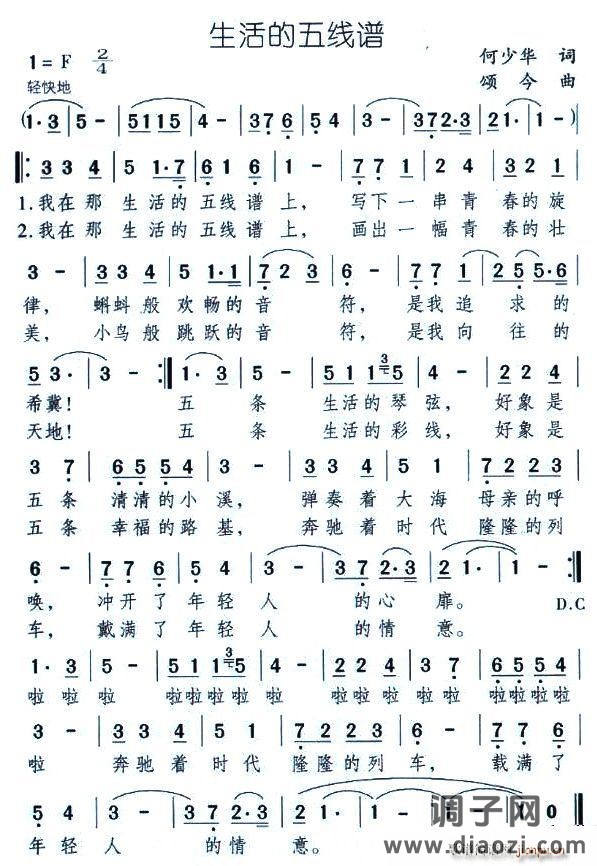 生活的五线谱
1=F 2/4
何少华 词
轻快地
颂今 曲
(1·3 | 5 - | 5115 | 4 - | 376 | 54 | 3 - | 372·3 | 21· | 1 - )
|: 3 3 4 | 5 1·7 | 6 1 6 | 1 - | 7 7 1 | 6 - | 7 7 1 | 3 2 1 |
1.我在那 生活的五线谱上, 写下一串青春的旋
2.我在那 生活的五线谱上, 画出一幅青春的壮
3 - | 3 3 4 | 5 1·1 | 7 2 3 | 6 - | 7 7 1 | 2 5 | 5·6 |
律, 蝌蚪般欢畅的音符, 是我追求的
美, 小鸟般跳跃的音符, 是我向往的
5 3· | 3 - :| 1·3 | 5 - | 5 1 1 5 | 5 - | 2 2 4 |
希冀! 五条 生活的琴弦, 好象是
天地! 五条 生活的彩线, 好象是
3 7 | 6 5 5 4 | 3 - | 3 3 4 | 5 1 | 7 2 2 3 |
五条清清的小溪, 弹奏着大海母亲的呼
五条幸福的路基, 奔驰着时代隆隆的列
6 - | 7 7 6 | 5 4 | 3 - | 3 7 2·3 | 2 1· | 1 - :|
唤, 冲开了年轻人的心扉。 D.C
车, 戴满了年轻人的情意。
1·3 | 5 - | 5 1 1 5 | 5 - | 2 2 4 | 3 7 | 6 5 5 4 |
啦啦啦 啦啦啦啦啦 啦啦啦啦啦 啦啦啦啦
3 - | 3 3 4 | 5 1 | 7 2 2 3 | 6 - | 7 7 6 |
啦 奔驰着时代隆隆的列车, 载满了
5 4 | 3 - | 3 7 2·3 | 2 1· | 1 - | 1 - | 1 0
年轻人的情意。
调子网
www.diaozi.com